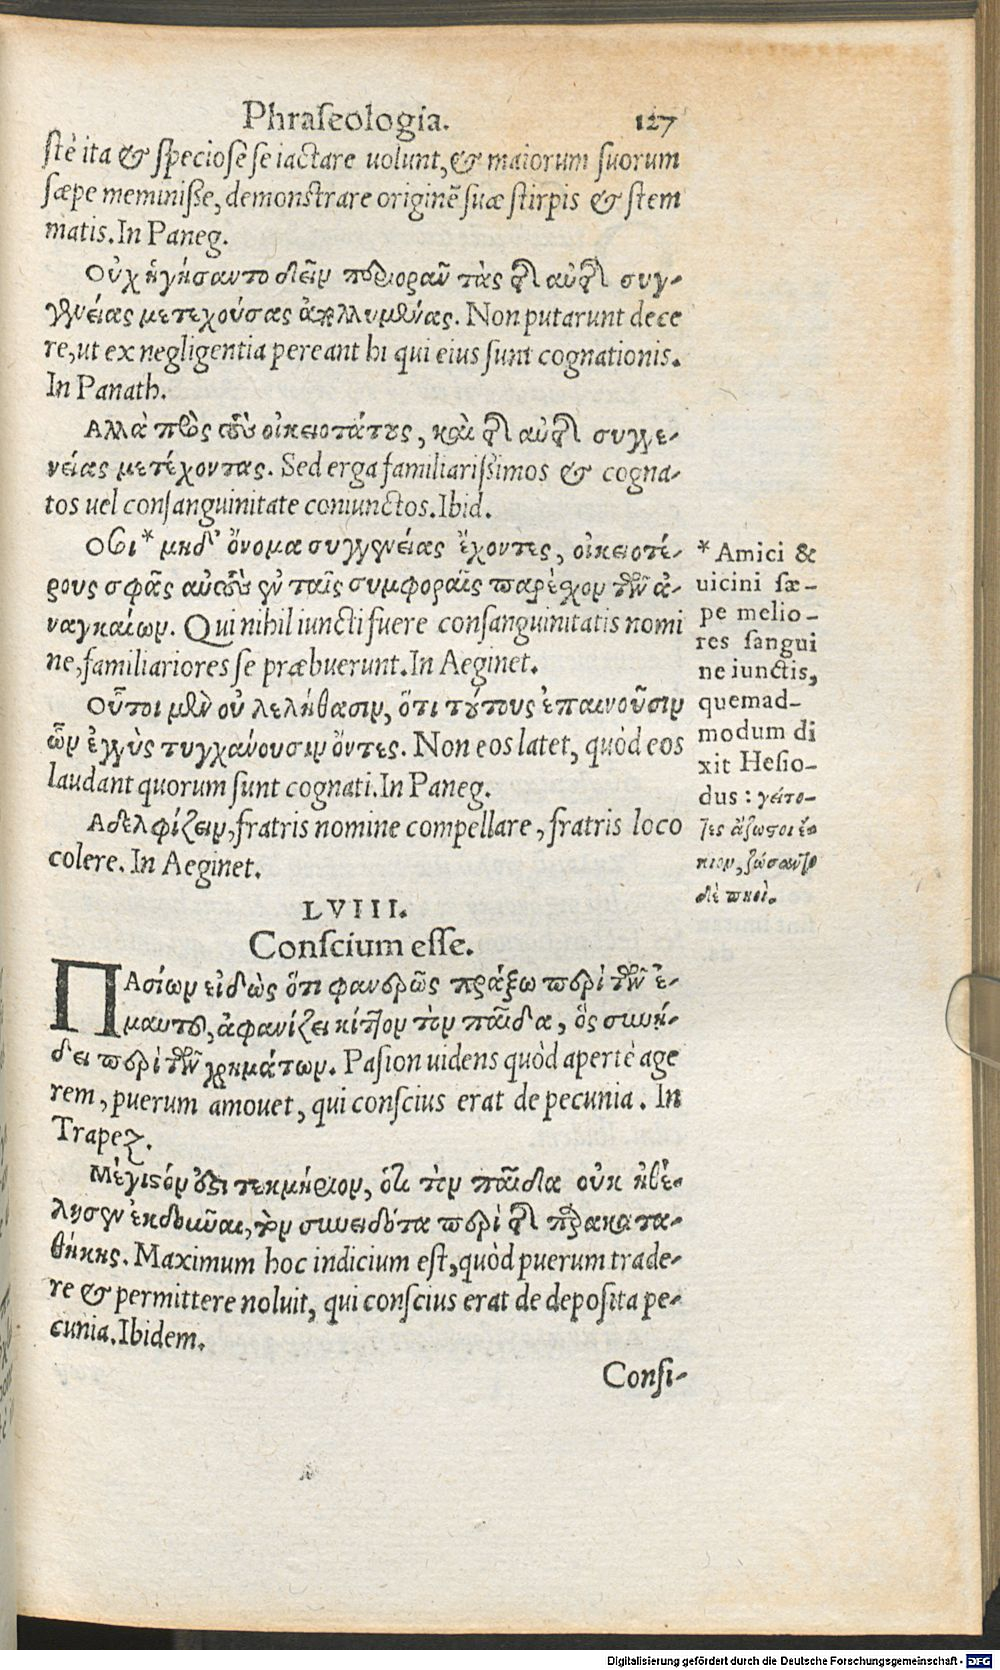 Phraſeologia. 127
ſtè ita & ſpecioſe ſe iactare uolunt, & maiorum ſuorum
ſæpe meminiſſe, demonſtrare originẽ ſuæ ſtirpis & ſtem
matis. In Paneg.
Οὐχ ἡγήσαντο δεῖν περιορᾶν τὰς τῆς αὐτῆς συγ-
γενείας μετεχούσας ἀπολλυμένας. Non putarunt dece
re, ut ex negligentia pereant hi qui eius ſunt cognationis.
In Panath.
Αλλὰ πρὸς τοὺς οἰκειοτάτους, καὶ τῆς αὐτῆς συγγε-
νείας μετέχοντας. Sed erga familiariſſimos & cogna-
tos uel conſanguinitate coniunctos. Ibid.
Οἵτι* μηδ' ὄνομα συγγενείας ἔχοντες, οἰκειοτέ-
ρους σφᾶς αὐτοὺς ἐν ταῖς συμφοραῖς παρέσχον τῶν ἀ-
ναγκαίων. Qui nihil iuncti fuere conſanguinitatis nomi
ne, familiariores ſe præbuerunt. In Aeginet.
Οὗτοι μὲν οὐ λελήθασιν, ὅτι τούτους ἐπαινοῦσιν
ὧν ἐγγὺς τυγχάνουσιν ὄντες. Non eos latet, quòd eos
laudant quorum ſunt cognati. In Paneg.
Αδελφίζειν, fratris nomine compellare, fratris loco
colere. In Aeginet.
* Amici &
uicini ſæ-
pe melio-
res ſangui
ne iunctis,
quemad-
modum di
xit Heſio-
dus: γείτο-
νες ἄζωστοι ἔ-
κιον, ζώσαντο
δὲ πηοί.
LVIII.
Conſcium eſſe.
ΠΑσίων εἰδὼς ὅτι φανερῶς πράξω περὶ τῶν ἐ-
μαυτοῦ, ἀφανίζει κίττον τὸν παῖδα, ὃς συνή-
δει περὶ τῶν χρημάτων. Paſion uidens quòd apertè age
rem, puerum amouet, qui conſcius erat de pecunia. In
Trapez.
Μέγιστόν ἐστι τεκμήριον, ὅτι τὸν παῖδα οὐκ ἠθέ-
λησεν ἐκδοῦναι, τὸν συνειδότα περὶ τῆς παρακατα-
θήκης. Maximum hoc indicium eſt, quòd puerum trade-
re & permittere noluit, qui conſcius erat de depoſita pe-
cunia. Ibidem.
Conſi-
Digitalisierung gefördert durch die Deutsche Forschungsgemeinschaft - DFG